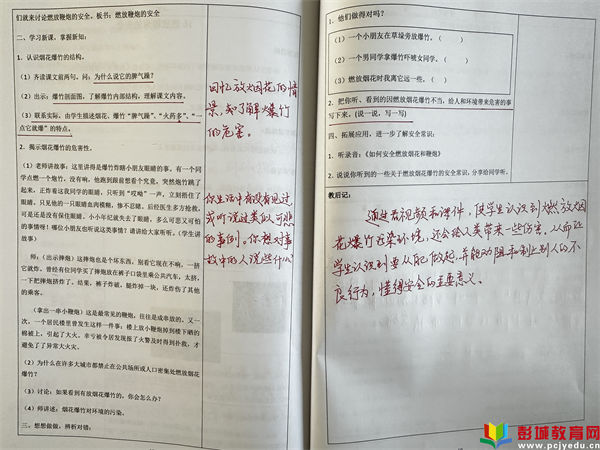 们就来讨论燃放鞭炮的安全。板书：燃放鞭炮的安全
二、学习新课，掌握新知：
1．认识烟花爆竹的结构。
（1）齐读课文前两句。问：为什么说它的脾气躁？
（2）出示：爆竹剖面图，了解爆竹内部结构，理解课文内容。
（3）联系实际，由学生描述烟花、爆竹“脾气躁”、“火药多”、“一
点它就爆”的特点。
2．揭示烟花爆竹的危害性。
（1）老师讲故事：这里讲得是爆竹炸瞎小朋友眼睛的事。有一个同
学点燃一个炮竹，没有响，他跑到跟前想看个究竟，突然炮竹跳了
起来，正炸着这我同学的眼睛，只听到“哎呦”一声，立刻捂住了
眼睛，只见他的一只眼睛血肉模糊，惨不忍睹。后经医生多方抢救，
可是还是没有保住眼睛。小小年纪就失去了眼睛，多么可悲又可怕
的事情呀！哪位小朋友也听说这类事情？请讲给大家听听。（学生讲
故事）
师：（出示摔炮）这摔炮也是个坏东西，别看它现在不响，一摔
它就炸。曾经有位同学买了摔炮放在裤子口袋里乘公共汽车，太挤，
一下把摔炮挤炸了。结果，裤子炸破，腿炸掉一块，还炸伤了其他
的乘客。
（拿出一串小鞭炮）这炮是最常见的鞭炮，往往是成串放的。又一
次，一个居民楼里曾发生这样一件事：楼上放小鞭炮掉到楼下晒的
棉被上，引起了大火。幸亏被令居发现报了火警及时得到扑救，才
避免了了异常大火灾。
（2）为什么在许多大城市都禁止在公共场所或人口密集处燃放烟花
爆竹？
（3）讨论：如果看到有放烟花爆竹的，你会怎么办？
（4）师讲述：烟花爆竹对环境的污染。
三、想想做做，辨析对错：
回忆放火烟花的情
景，知了解爆竹
的危害。
你生活中有没有见过
或听说过类似可悲
的事例。你想对事
故中的人说些什么
1．他们做得对吗？
（1）一个小朋友在草垛旁放爆竹。（ ）
（2）一个男同学拿爆竹吓唬女同学。（ ）
（3）燃放烟花时我离它远一些。（ ）
2．把你听、看到的因燃放烟花爆竹不当，给人和环境带来危害的事
写下来。(说一说，写一写)
四、拓展应用，进一步了解安全常识：
1．听录音：《如何安全燃放烟花和鞭炮》
2．说说你听到的一些关于燃放烟花爆竹的安全常识，分享给同学听。
教后记：
通过看视频和课件，使学生认识到燃放火烟
花爆竹污染环境，还会给人类带来一些伤害，从而让
学生认识到要从自己做起，并能劝阻和制止别人的不
良行为，懂得安全的重要意义。
彭城教育网
www.pcjyedu.cn